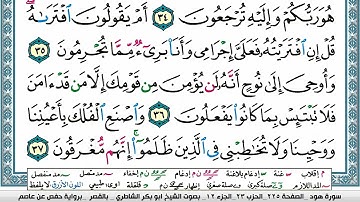 هُوَ رَبُّكُمْ وَإِلَيْهِ تُرْجَعُونَ ٣٤ أَمْ يَقُولُونَ ٱفْتَرَىٰهُ
قُلْ إِنِ ٱفْتَرَيْتُهُۥ فَعَلَىَّ إِجْرَامِى وَأَنَا۠ بَرِىٓءٌ مِّمَّا تُجْرِمُونَ ٣٥
وَأُوحِىَ إِلَىٰ نُوحٍ أَنَّهُۥ لَن يُؤْمِنَ مِن قَوْمِكَ إِلَّا مَن قَدْ ءَامَنَ
فَلَا تَبْتَئِسْ بِمَا كَانُوا۟ يَفْعَلُونَ ٣٦ وَٱصْنَعِ ٱلْفُلْكَ بِأَعْيُنِنَا
وَوَحْيِنَا وَلَا تُخَـٰطِبْنِى فِى ٱلَّذِينَ ظَلَمُوٓا۟ إِنَّهُم مُّغْرَقُونَ ٣٧
سورة هود . الصفحة ٢٢٥ الحزب ٢٣ . الجزء ١٢ بصوت الشيخ أبو بكر الشاطري بالقصر رواية حفص عن عاصم